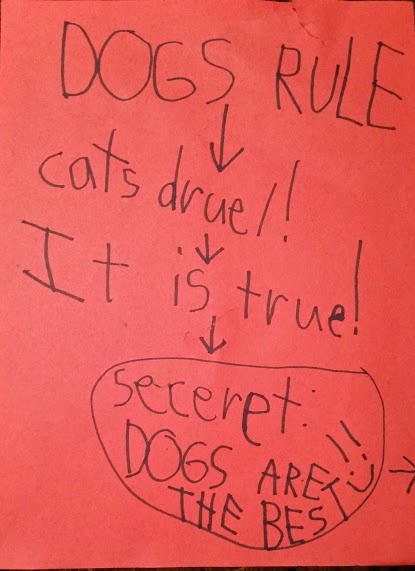 DOGS RULE
cats druel!
It is true!
seceret:
DOGS ARE!!
THE BEST